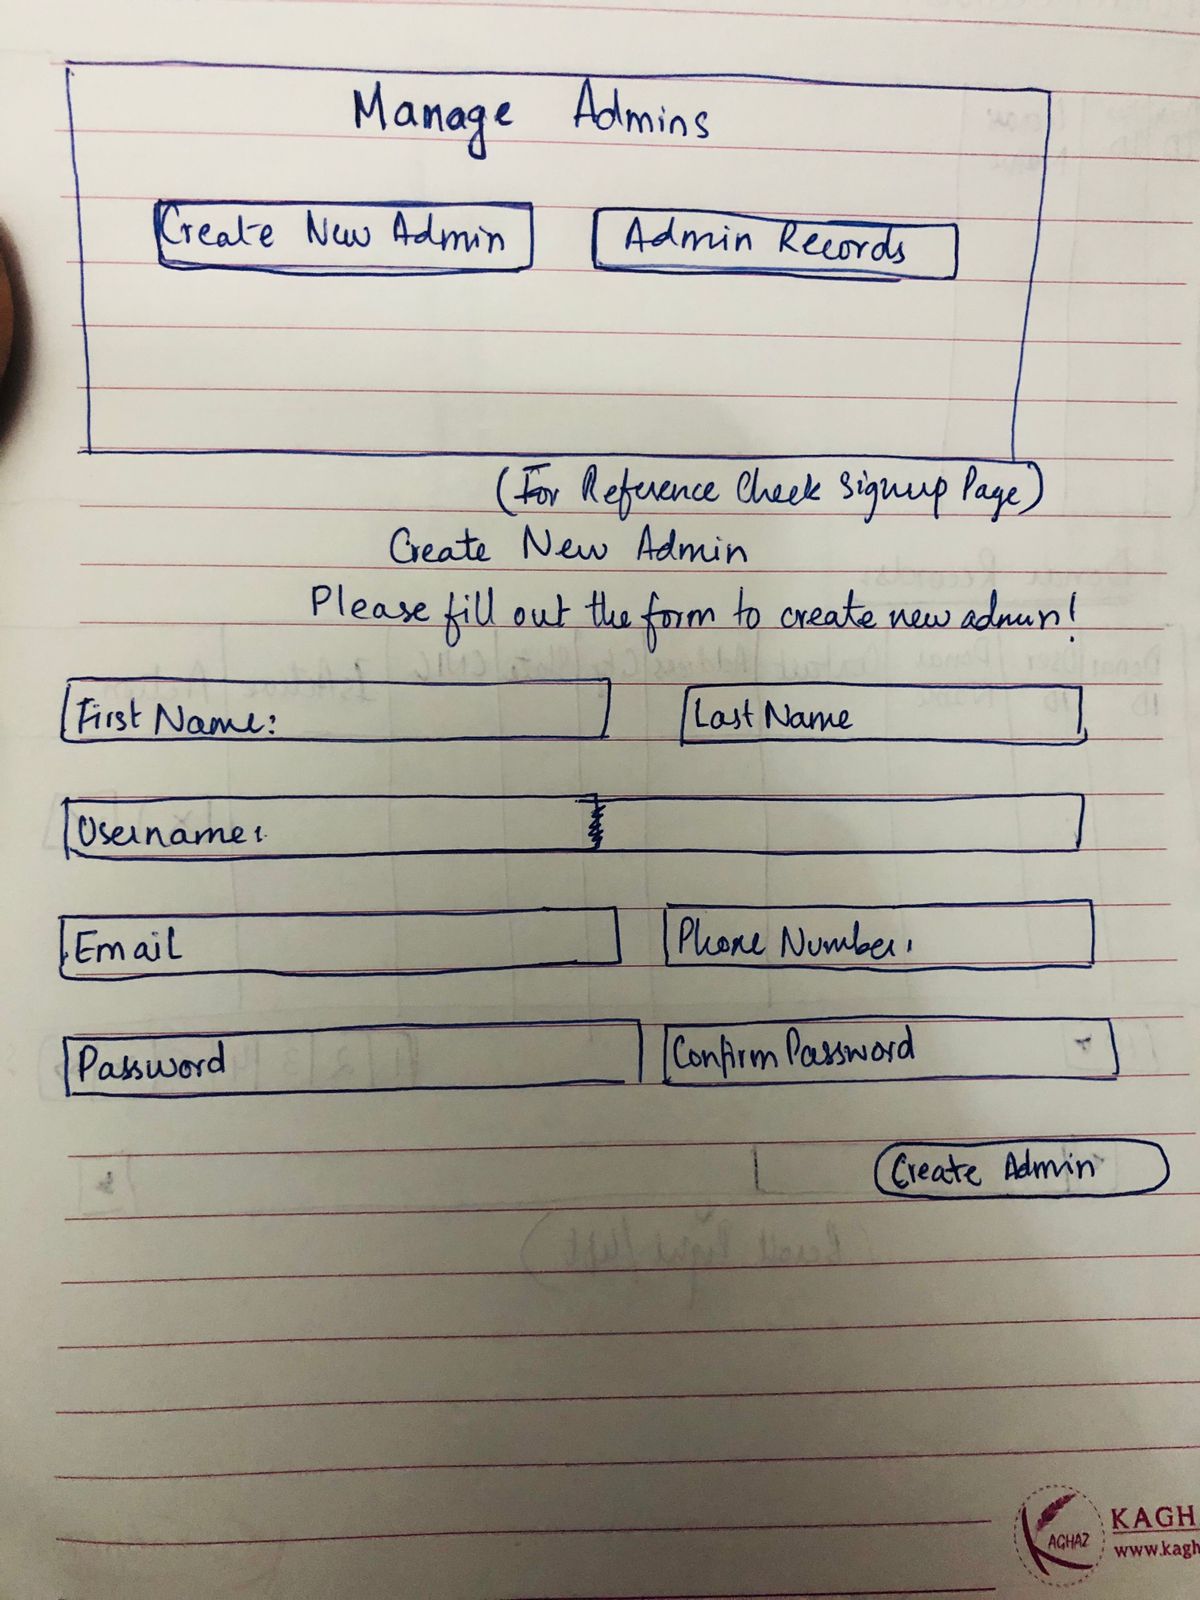 Manage Admins
Create New Admin
Admin Records
(For Reference Check Signup Page)
Create New Admin
Please fill out the form to create new admin!
First Name:
Last Name
Username:
Email
Phone Number:
Password
Confirm Password
Create Admin
KAGH
AGHAZ
www.kagh